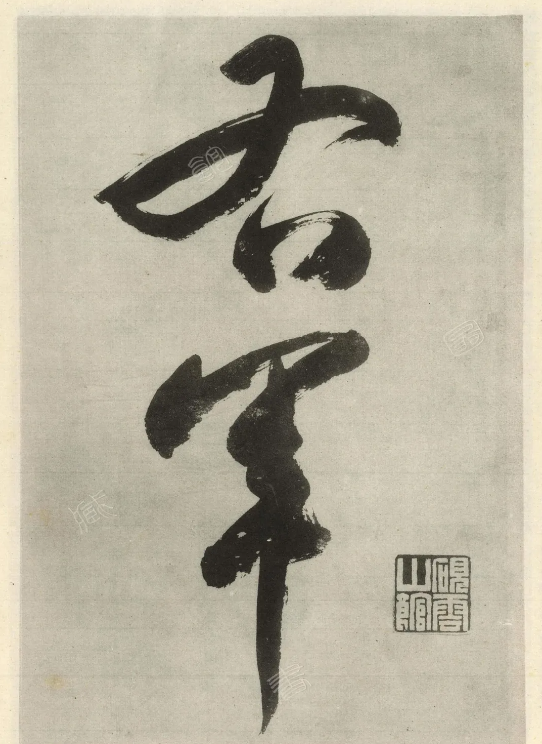 右軍
硯雲山館